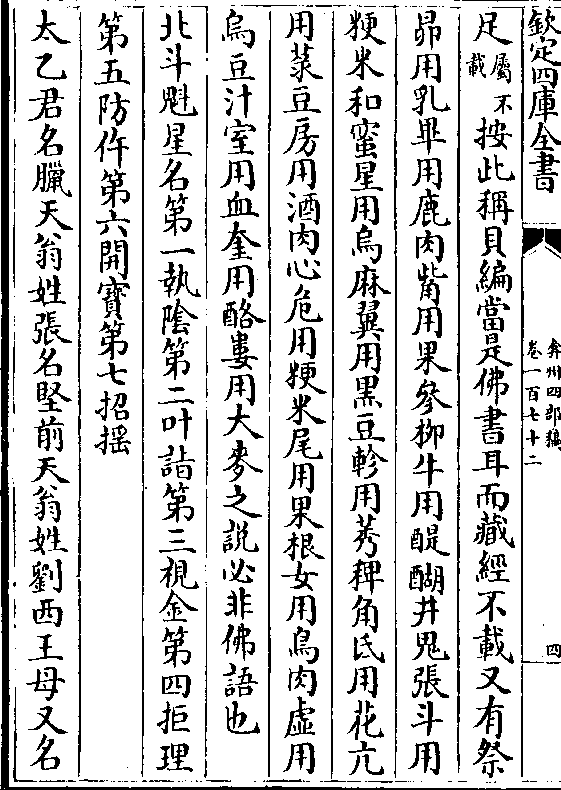 欽定四庫全書
弇州四部稿
卷一百七十二
四
足屬不載按此稱貝編當是佛書耳而藏經不載又有祭
昴用乳畢用鹿肉觜用果參柳牛用醍醐井鬼張斗用
粳米和蜜星用烏麻翼用黑豆軫用莠稗角氐用花亢
用菉豆房用酒肉心危用粳米尾用果根女用鳥肉虛用
烏豆汁室用血奎用酪婁用大麥之說必非佛語也
北斗魁星名第一執陰第二叶詣第三視金第四拒理
第五防仵第六開寶第七招揺
太乙君名臘天翁姓張名堅前天翁姓劉西王母又名